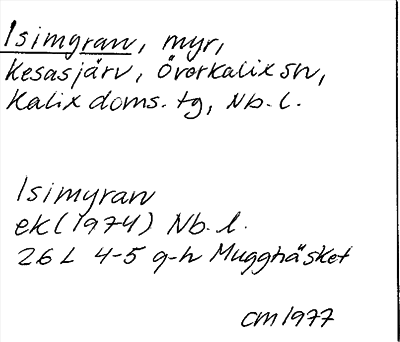 Isimyran, myr,
Kesasjärv, Överkalix sn,
Kalix doms. tg, Nb. l.
Isimyran
ek (1974) Nb. l.
26 L 4-5 g-h Mugghäsket
CM 1977